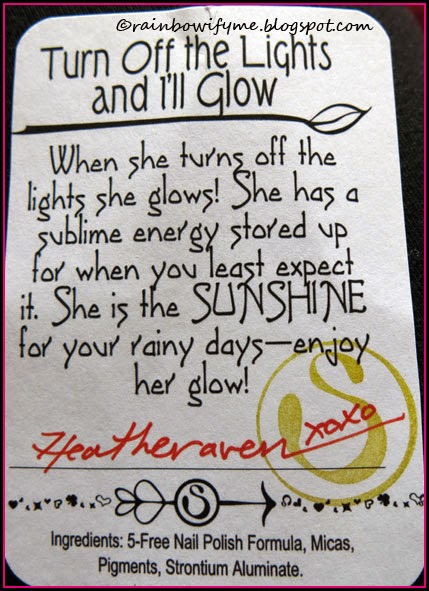 ©rainbowifyme.blogspot.com
Turn Off the Lights
and I'll Glow
When she turns off the
lights she glows! She has a
sublime energy stored up
for when you least expect
it. She is the SUNSHINE
for your rainy days—enjoy
her glow!
Heatheraven xoxo
S
S
Ingredients: 5-Free Nail Polish Formula, Micas,
Pigments, Strontium Aluminate.